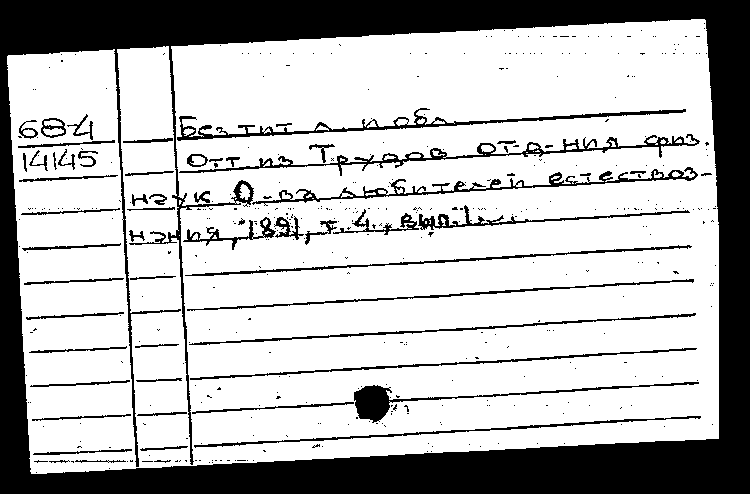 68-4
14145
Без тит л. и обл.
Отт из Трудов от-д-ния физ.
наук О-ва любителей естествоз-
нания, 1891, т. 4, вып. 1